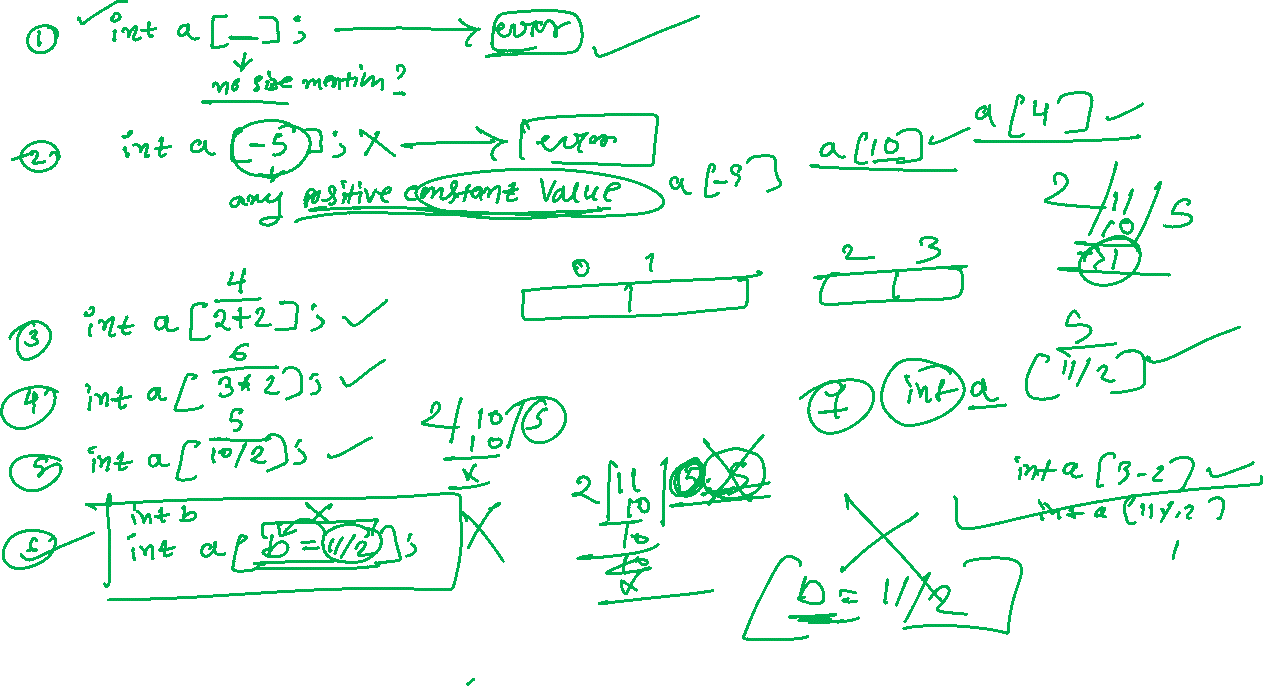 ① int a[_]; → error
no size mention?
② int a[-5]; X → error
any positive constant value
a[-9]
a[10]
a[4]
2/11/5
10
1
0 1 2 3
4
③ int a[2+2];
6
④ int a[3*2];
5
⑤ int a[10/2];
2/10/5
10
x
⑥ int b
int a[b=11/2]; X
2 11 5
10
10
10
x
5
⑦ int a[11/2]
int a[3-2]
int a[11%2]
1
[b=11/2]